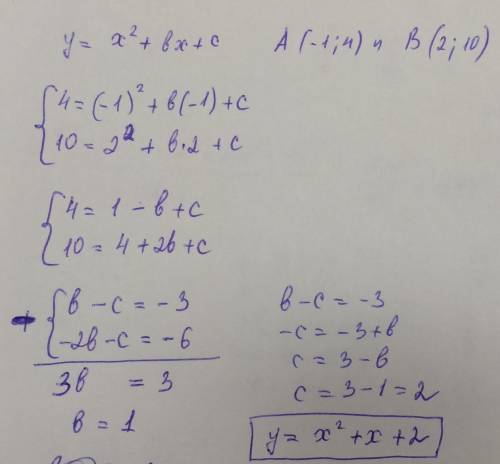 y = x² + bx + c    A (-1; 4) и B (2; 10)
{ 4 = (-1)² + b(-1) + c
10 = 2² + b·2 + c
{ 4 = 1 - b + c
10 = 4 + 2b + c
- { b - c = -3
-2b - c = -6
3b = 3
b = 1
b - c = -3
-c = -3 + b
c = 3 - b
c = 3 - 1 = 2
y = x² + x + 2